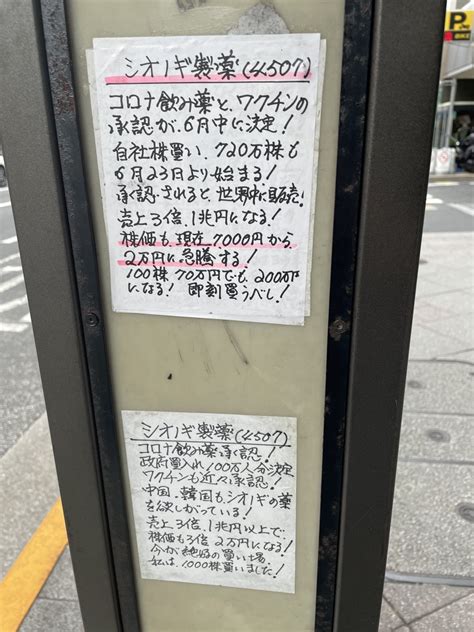 シオノギ製薬(4507)
コロナ飲み薬と、ワクチンの
承認が、6月中に決定!
自社株買い、720万株も
6月23日より始まる!
承認されると、世界中に販売!
売上3倍、1兆円になる!
株価も、現在7,000円から
2万円に急騰する!
100株 70万円でも、200万円
になる! 即刻買うべし!
シオノギ製薬(4507)
コロナ飲み薬承認!
政府買入れ100万人分決定
ワクチンも近々承認!
中国、韓国もシオノギの薬
を欲しがっている!
売上3倍、1兆円以上で
株価も3倍、2万円になる!
今が絶好の買い場、
私は、1,000株買いました!
P